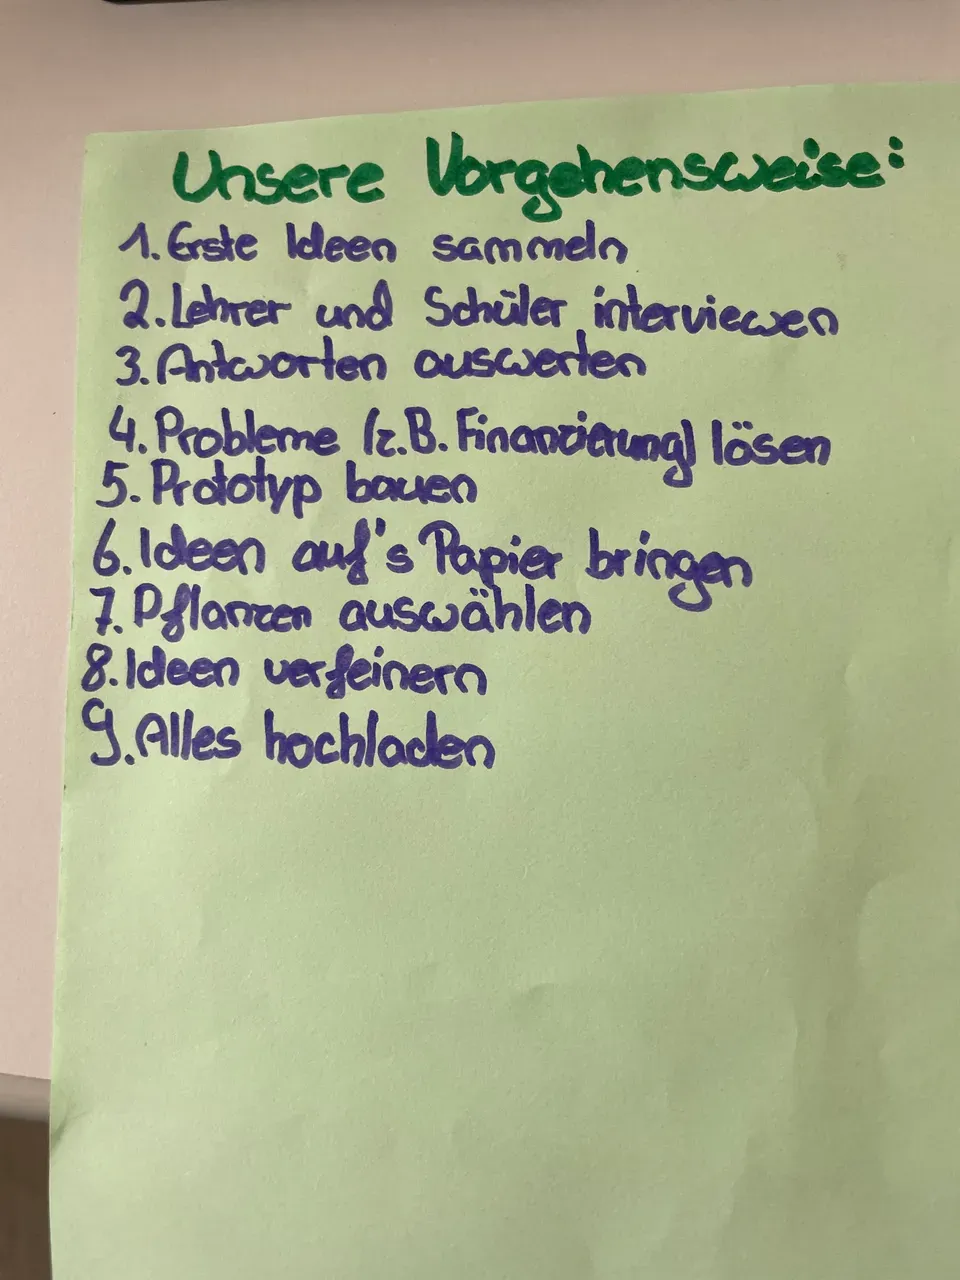 Unsere Vorgehensweise:
1. Erste Ideen sammeln
2. Lehrer und Schüler interviewen
3. Antworten auswerten
4. Probleme (z.B. Finanzierung) lösen
5. Prototyp bauen
6. Ideen auf's Papier bringen
7. Pflanzen auswählen
8. Ideen verfeinern
9. Alles hochladen